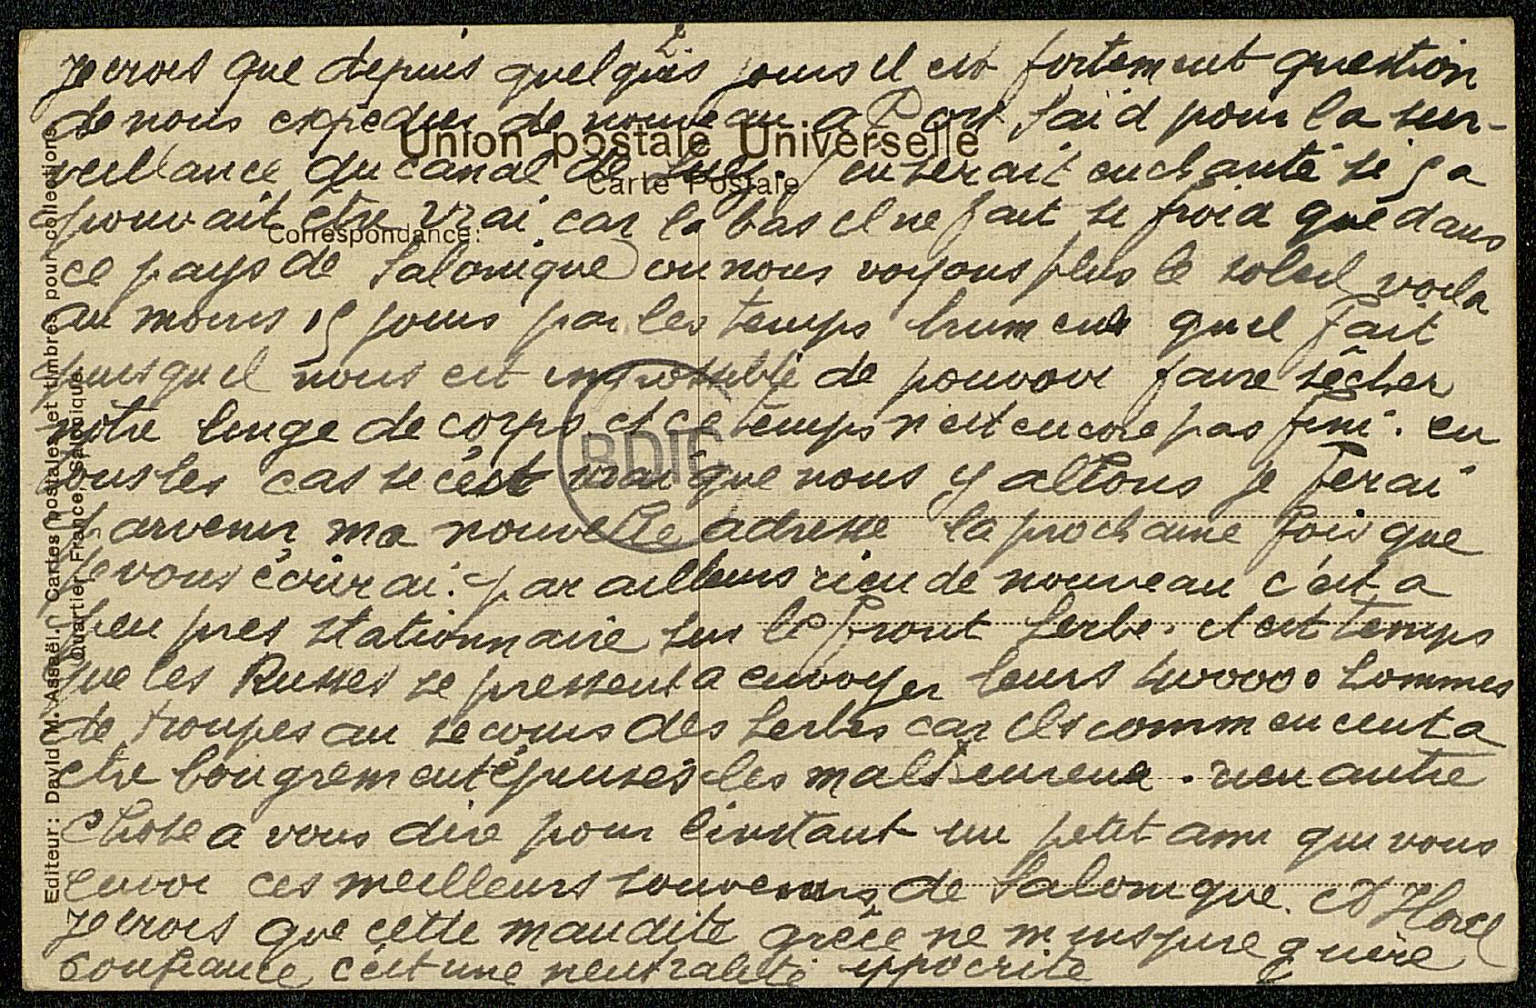 2.
Je crois que depuis quelques jours il est fortement question
de nous expedier de nouveau a Port Saïd pour la sur-
veillance du canal de Suez. J'en serait enchanté si ça
pouvait être vrai car la bas il ne fait se froid que dans
ce pays de Salonique ou nous voyons plus le soleil voila
au moins 15 jours par les temps brumeux quil fait
puisquil nous est impossible de pouvoir faire sêcher
notre linge de corps et ce temps n'est encore pas fini. en
tous les cas se c'est vrai que nous y allons je ferai
parvenir ma nouvelle adresse la prochaine fois que
je vous écrirai. par ailleurs rien de nouveau c'est a
peu pres stationnaire sur le front Serbe. il est temps
que les Russes se pressent a envoyer leurs 400000 hommes
de troupes au secours des Serbes car ils commencent a
etre bougrement épuisés les malheureux. rien autre
chose a vous dire pour linstant un petit ami qui vous
envoi ces meilleurs souvenirs de Salonique.
Je crois que cette maudite grêce ne m'inspire guère
confiance c'est une neutralité yppocrite
Union postale Universelle
Carte Postale
Correspondance:
Editeur: David M. Assaël. Cartes postales et timbres pour collections
Quartier Franc, Salonique.
BDIC